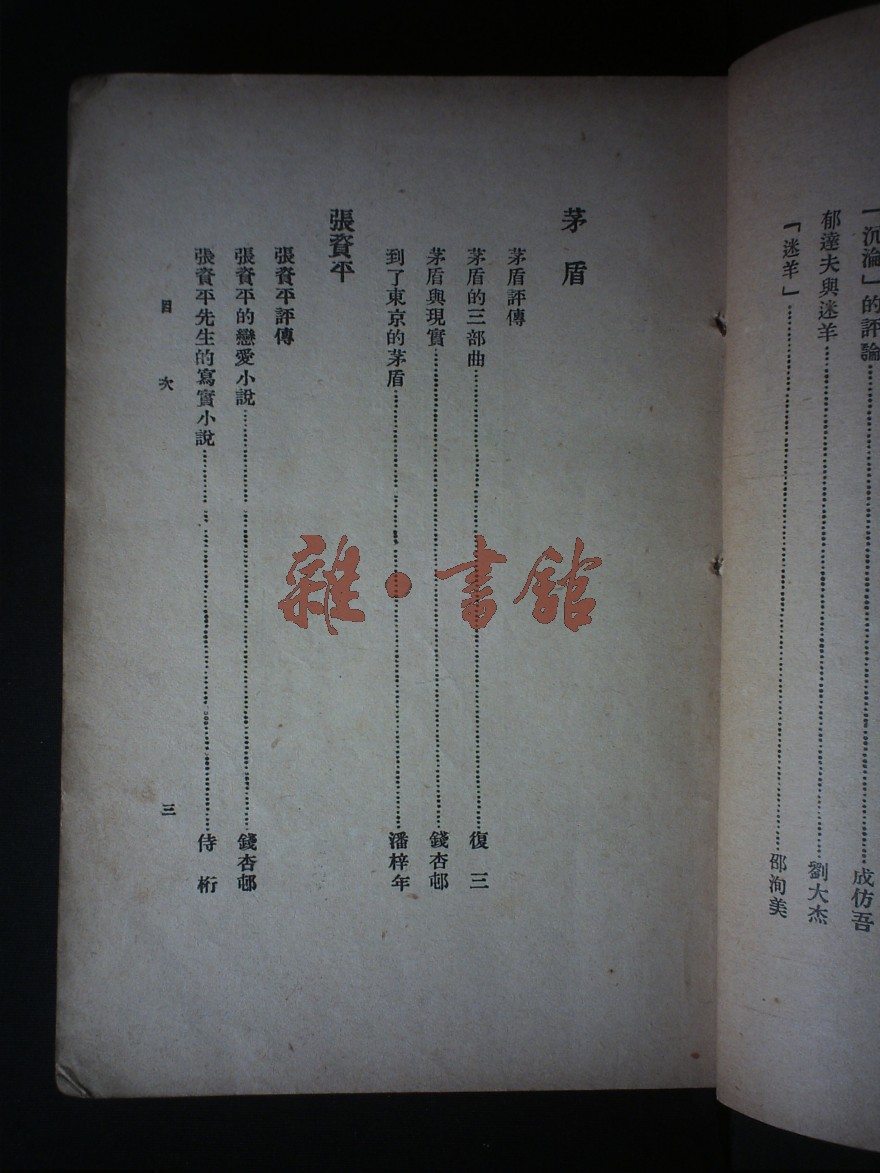 「沉淪」的評論……成仿吾
郁達夫與迷羊……劉大杰
「迷羊」……邵洵美
茅盾
茅盾評傳
茅盾的三部曲……復三
茅盾與現實……錢杏邨
到了東京的茅盾……潘梓年
張資平
張資平評傳
張資平的戀愛小說……錢杏邨
張資平先生的寫實小說……侍桁
目次
三
雜·書館